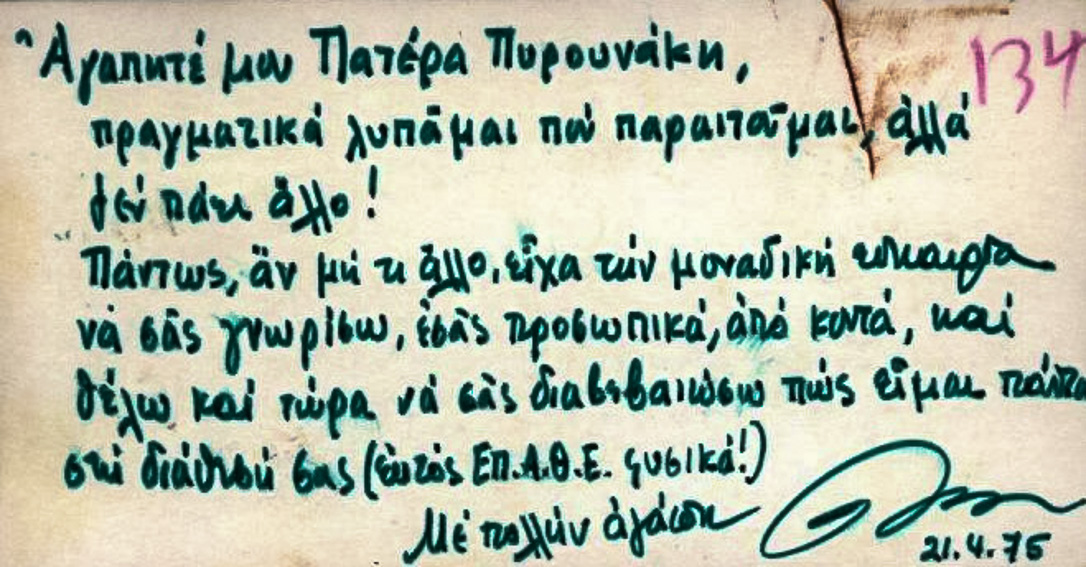 Ἀγαπητέ μου Πατέρα Πυρουνάκη,
134
πραγματικά λυπᾶμαι πού παραιτοῦμαι, ἀλλά
δέν πάει ἄλλο!
Πάντως, ἄν μή τι ἄλλο, εἶχα τήν μοναδική εὐκαιρία
νά σᾶς γνωρίσω, ἐσᾶς προσωπικά, ἀπό κοντά, καί
θέλω καί τώρα νά σᾶς διαβεβαιώσω πώς εἶμαι πάντα
στή διάθεσή σας (ἐκτός ΕΠ.Α.Θ.Ε. φυσικά!)
Μέ πολλήν ἀγάπη
21.4.75